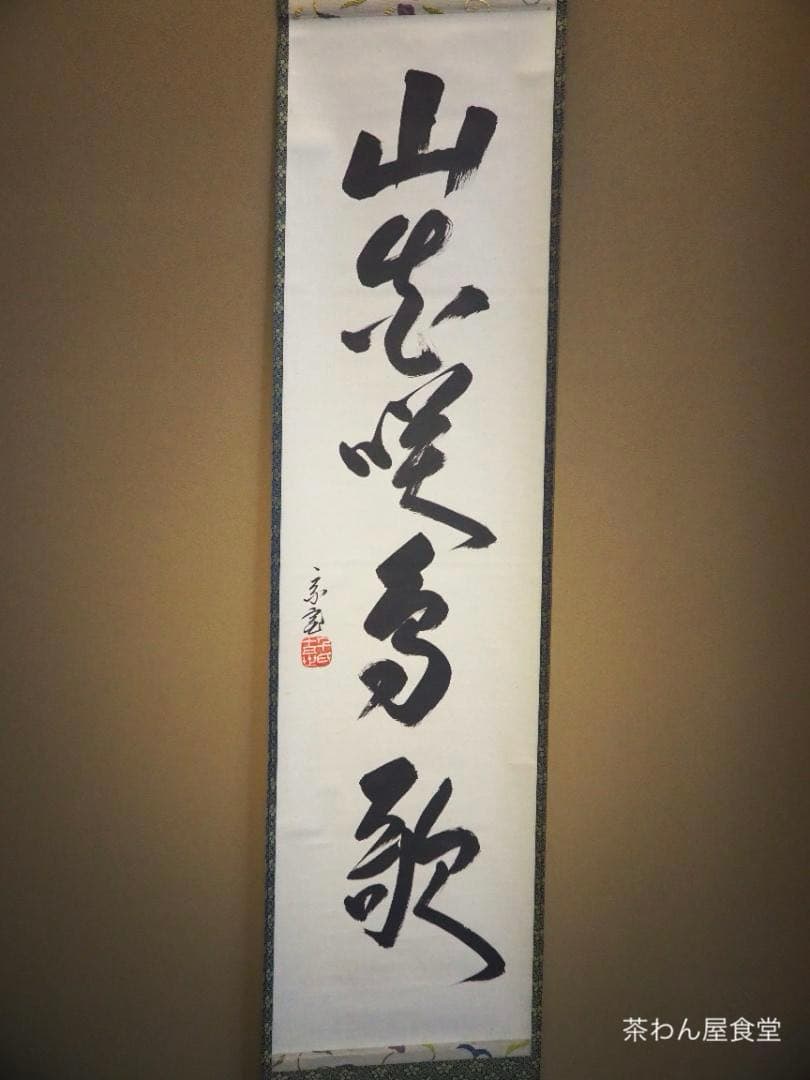 山花咲鳥歌
宗完
茶わん屋食堂